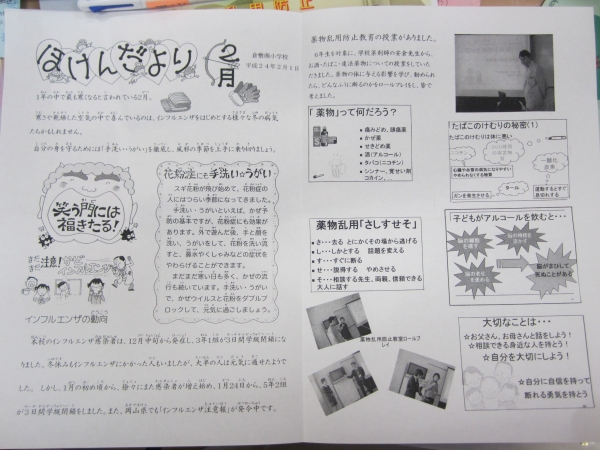 ほけんだより
2月
倉敷南小学校
平成24年2月1日
1年の中で最も寒くなると言われている2月。
寒さや乾燥した空気の中で喜んでいるのは、インフルエンザをはじめとする様々な冬の病気
たちかもしれません。
自分の身を守るためには「手洗い・うがい」を徹底し、風邪の季節を上手に乗り切りましょう。
笑う門には
福きたる!
花粉症にも手洗い・うがい
スギ花粉が飛び始めて、花粉症の
人にはつらい季節になってきました。
手洗い・うがいといえば、かぜ予
防の基本ですが、花粉症にも効果
があります。外で遊んだ後、手と顔を
洗い、うがいをして、花粉を洗い流
すと、鼻水やくしゃみなどの症状を
やわらげることができます。
まだまだ寒い日も多く、かぜの流
行も続いています。手洗い・うがい
で、かぜウイルスと花粉をダブルブ
ロックして、元気に過ごしましょう。
まだまだ注意!
インフルエンザ
インフルエンザの動向
本校のインフルエンザ罹患者は、12月中旬から発症し、3年1組が3日間学級閉鎖にな
りました。冬休みもインフルエンザにかかった人もいましたが、大半の人は元気に過ごせたようで
した。しかし、1月の初め頃から、徐々にまた罹患者が増え始め、1月24日から、5年2組
が3日間学級閉鎖をしました。また、岡山県でも「インフルエンザ注意報」が発令中です。
薬物乱用防止教育の授業がありました。
6年生を対象に、学校薬剤師の安倉先生から、
お酒・たばこ・違法薬物についての授業をしていた
だきました。薬物の体に与える影響を学び、勧められ
たら、どんなふうに断るのかをロールプレイをし、皆で
考えました。
「薬物」って何だろう?
痛みどめ、頭痛薬
かぜ薬
せきどめ薬
酒(アルコール)
タバコ(ニコチン)
シンナー、覚せい剤
コカイン、
薬物乱用「さしすせそ」
さ・・・去る とにかくその場から逃げる
し・・・しかとする 話題を変える
す・・・すぐに断る
せ・・・説得する やめさせる
そ・・・相談する先生、両親、信頼できる
大人に話す
薬物乱用防止教室ロールプ
レイ
たばこのけむりの秘密(1)
たばこのけむりは体に悪い
一酸化
炭素
タール
ガンを発生させる
運動するとすぐ
息切れする
「子どもがアルコールを飲むと・・・
脳の細胞
を壊す
脳の神経を
溶かす
脳の老化
を進める
脳がまひして
死ぬことがある
大切なことは・・・
☆お父さん、お母さんと話をしよう!
☆相談できる身近な人を持とう!
☆自分を大切にしよう!
☆自分に自信を持って
断れる勇気を持とう